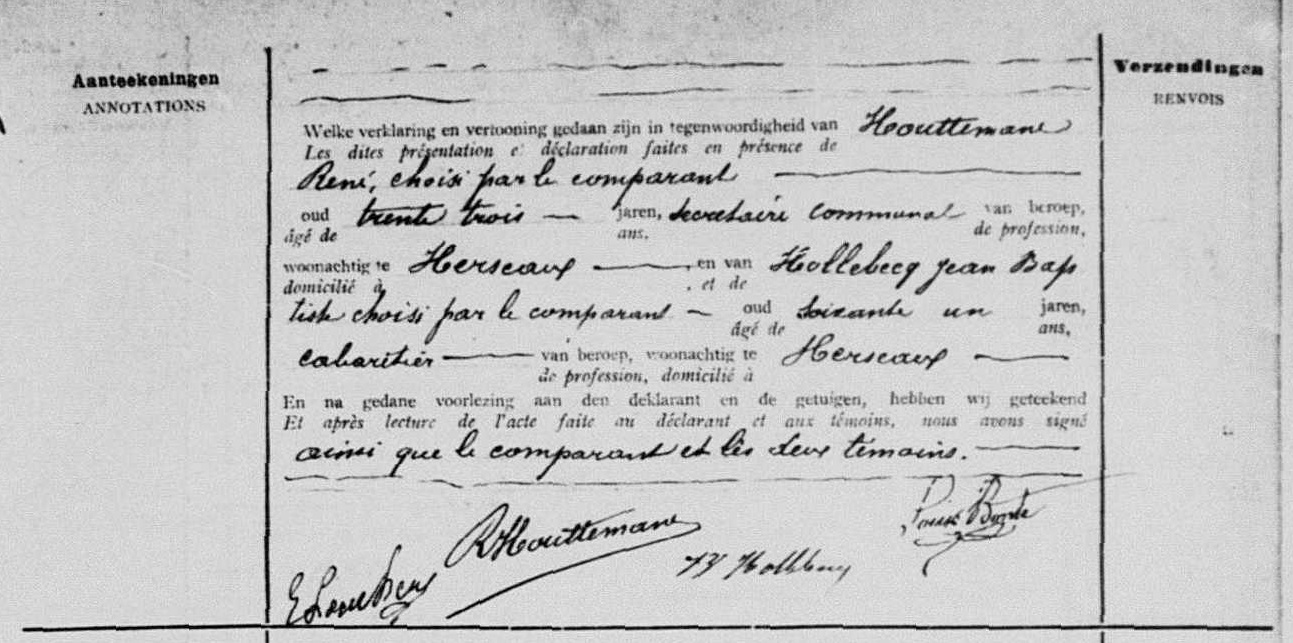 Aanteekeningen
ANNOTATIONS
Verzendingen
RENVOIS
Welke verklaring en vertooning gedaan zijn in tegenwoordigheid van Houttemane
Les dites présentation et déclaration faites en présence de
René, choisi par le comparant
oud trente trois — jaren, secretaire communal van beroep,
âgé de ans, de profession,
woonachtig te Herseaux — en van Hollebecq Jean Bap
domicilié à et de
tiste choisi par le comparant — oud soixante un jaren,
âgé de ans,
cabaretier — van beroep, woonachtig te Herseaux —
de profession, domicilié à
En na gedane voorlezing aan den deklarant en de getuigen, hebben wij geteekend
Et après lecture de l'acte faite au déclarant et aux témoins, nous avons signé
ainsi que le comparant et les deux témoins. —
RHouttemane